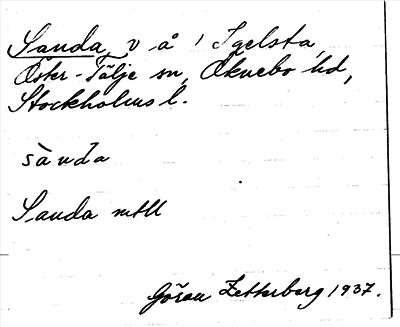 Sanda, v å i Igelsta,
Öster-Tälje sn, Öknebo hd,
Stockholms l.
sànda
Sanda mtll
Göran Zetterberg 1937.